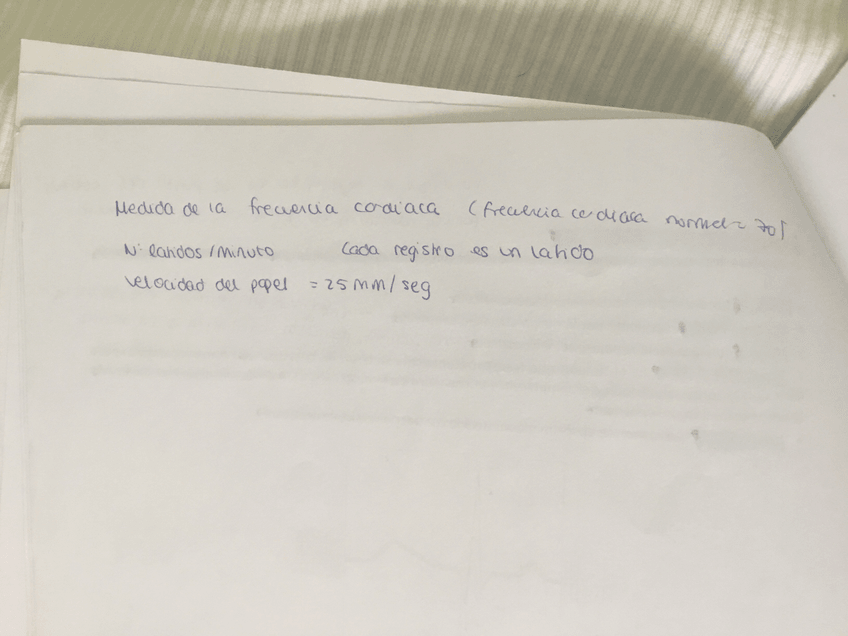 Medida de la frecuencia cardiaca (frecuencia cardiaca normal = 70)
Nº latidos/minuto Cada registro es un latido
Velocidad del papel = 25 mm/seg